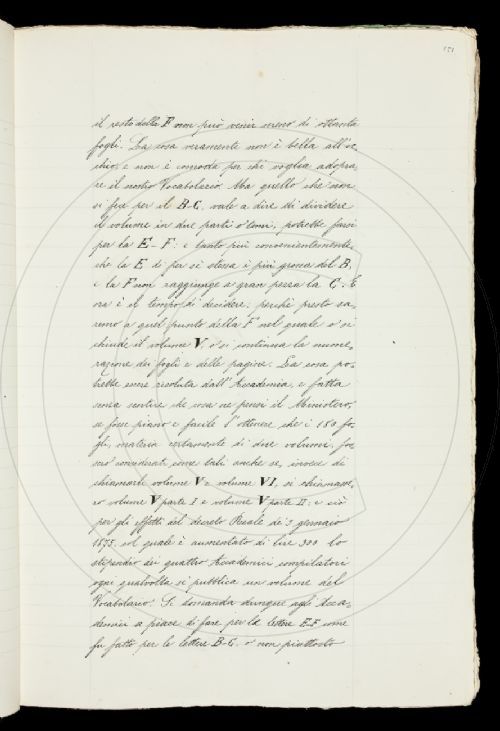 151
il resto della F non può venir meno di ottanta
fogli. La cosa veramente non è bella all'oc,
chio, e non è comoda per chi voglia adopra,
re il nostro Vocabolario. Ma quello che non
si fece per il B-C, vale a dire di dividere
il volume in due parti o tomi, potrebbe farsi
per la E-F: e tanto più convenientemente,
che la E di per sé stessa è più grossa del B,
e la F non raggiunge a gran pezza la C. E
ora è il tempo di decidere; perchè presto sa,
remo a quel punto della F nel quale o si
chiude il volume V, o si continua la nume,
razione dei fogli e delle pagine. La cosa po,
trebbe essere risoluta dall'Accademia, e fatta
senza sentire che cosa ne pensi il Ministero,
se fosse piano e facile l'ottenere che i 180 fo,
gli, materia certamente di due volumi, fos,
sero considerati come tali anche se, invece di
chiamarli volume V e volume VI, si chiamasse,
ro volume V parte I e volume V parte II: e ciò
per gli effetti del decreto Reale de' 3 gennaio
1875. col quale è aumentato di lire 300 lo
stipendio dei quattro Accademici compilatori
ogni qualvolta si pubblica un volume del
Vocabolario. Si domanda dunque agli Acca,
demici se piace di fare per la lettere E.F. come
fu fatto per le lettere B-C. o non piuttosto